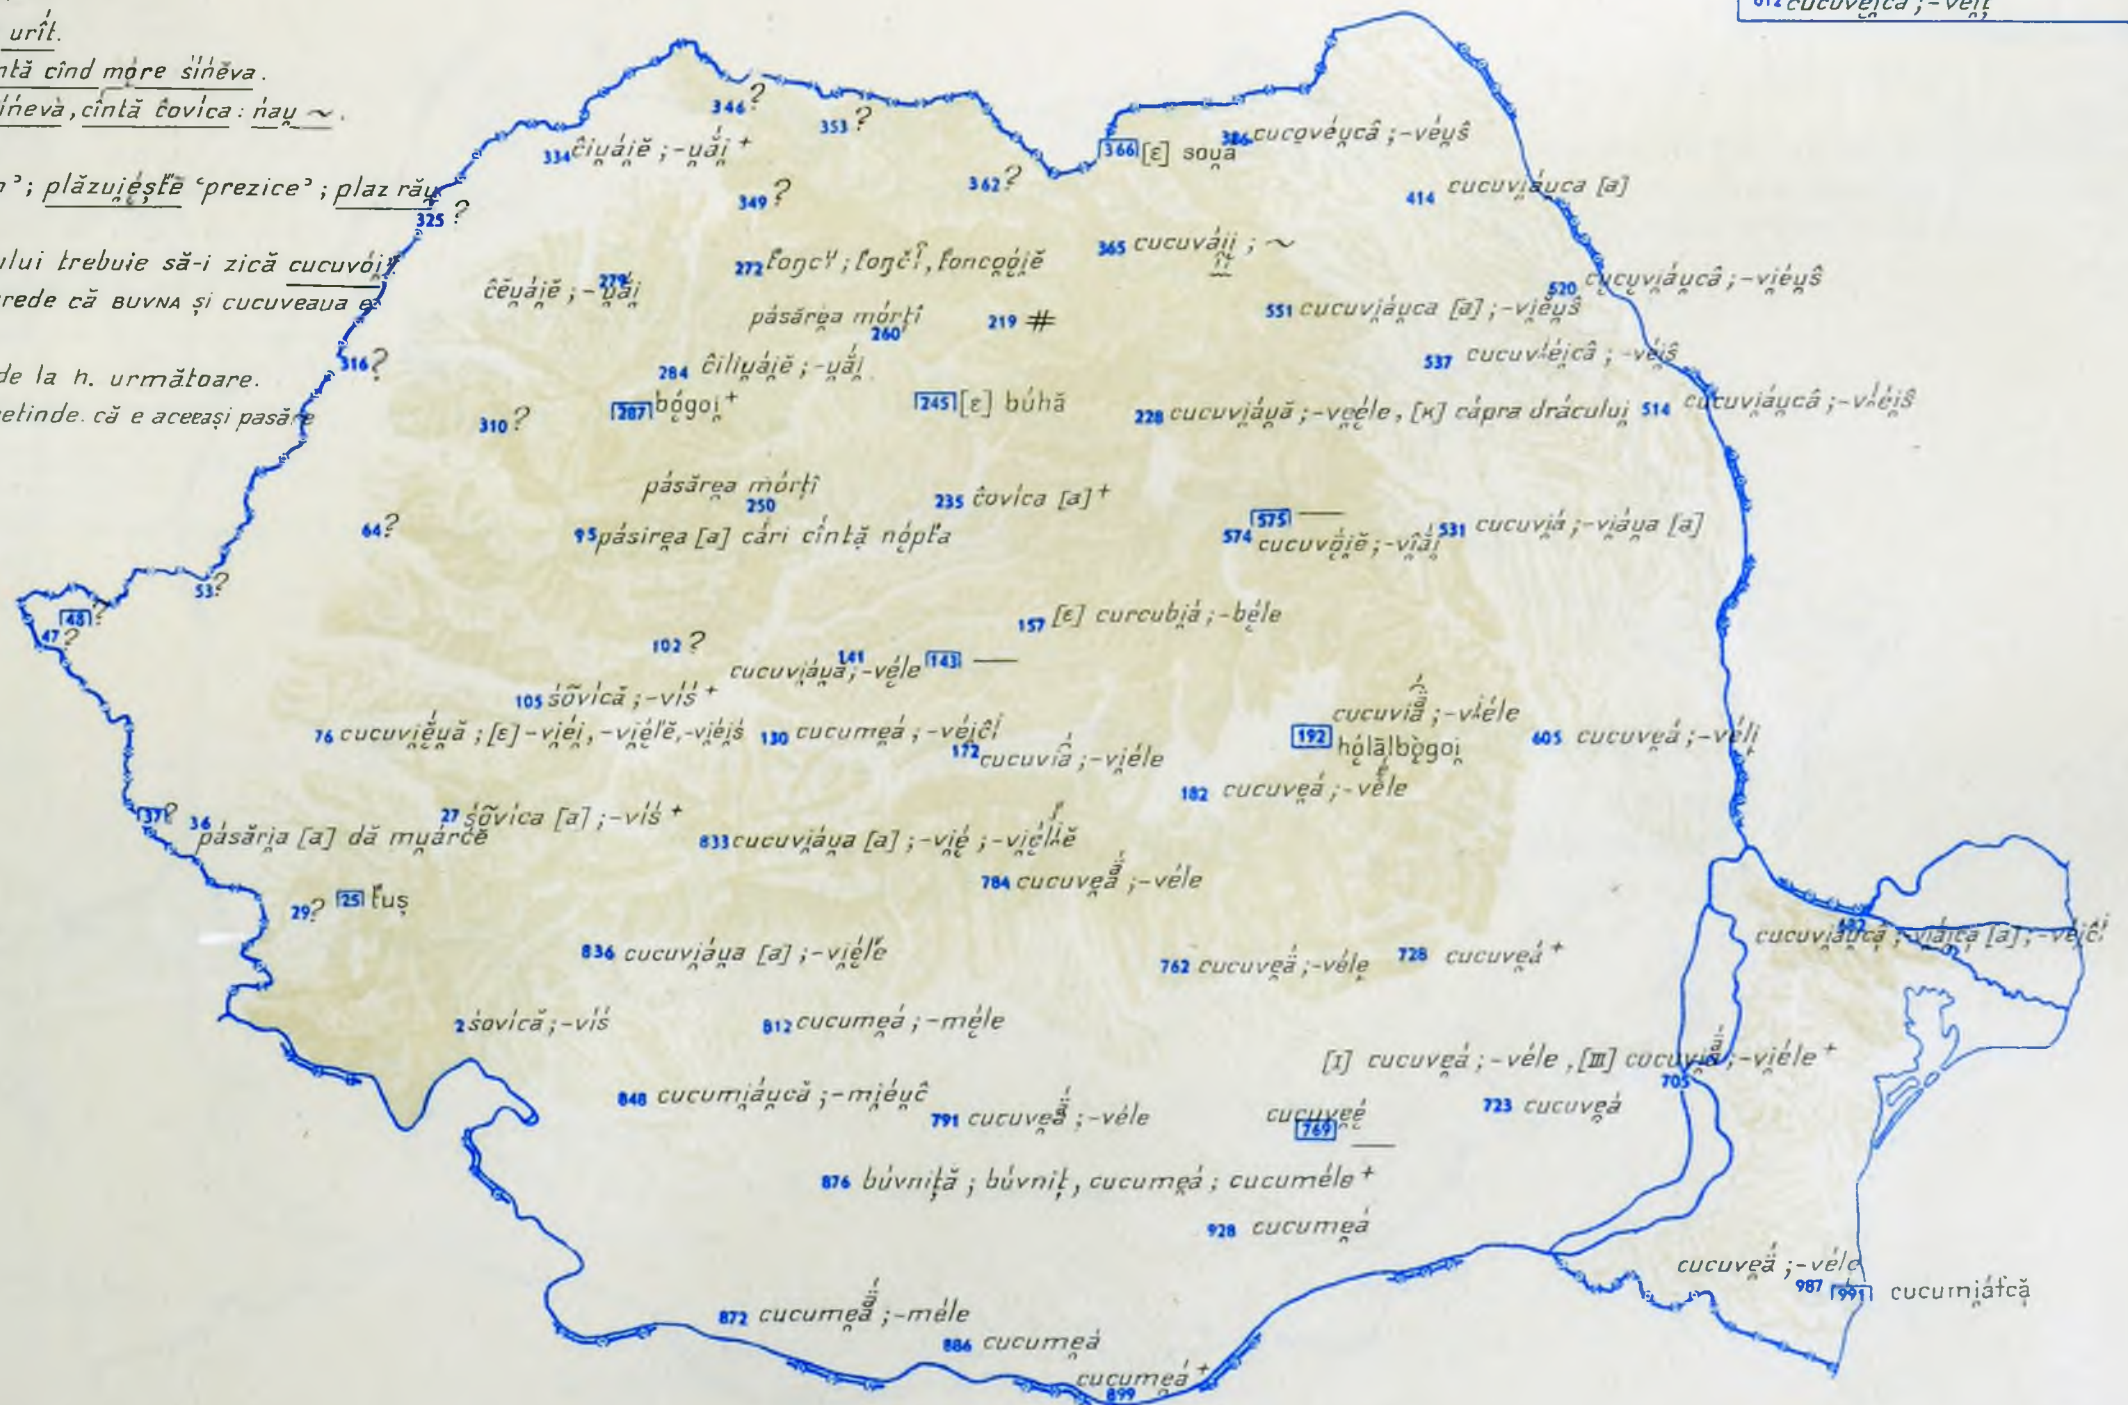 812 cucuvei̯că ; -vei̯ț
urît.
ntă cînd mo̯re śińĕva.
ińeva, cîntă ĉovica : ńau̯ ~.
plăzui̯éșt́e ‘prezice’ ; plaz rău̯
ului trebuie să-i zică cucuvói̯
rede că BUVNA și cucuveaua e
de la h. următoare.
etinde. că e aceeași pasăre
346 ?
353 ?
334 ĉiu̯ái̯ĕ ; -u̯ắi̯ +
366 [ε] sou̯ă
386 cucovéu̯câ ; -véu̯ŝ
349 ?
362 ?
414 cucuvi̯áu̯ca [a]
325 ?
272 t́oŋcʸ ; t́oŋĉĭ, t́oncoo̯i̯ĕ
365 cucuvắi̯i̯ ; ~
279 ĉĕu̯ái̯ĕ ; -u̯ắi̯
520 cucuvi̯áu̯câ ; -vi̯éu̯ŝ
pásărea mórți
260
219 #
551 cucuvi̯áu̯ca [a] ; -vi̯éu̯ŝ
316 ?
284 ĉiliu̯ái̯ĕ ; -u̯ắi̯
537 cucuvʎéi̯câ ; -véi̯ŝ
287 bógoi̯ +
245 [ε] búhă
228 cucuvi̯áu̯ă ; -veéle, [κ] cápra drácului̯
514 cucuvi̯áu̯câ ; -vʎéi̯ŝ
310 ?
pásărea mórțî
250
235 ĉovíca [a] +
64 ?
95 pásirea [a] cári cîntă nópt́a
575 —
574 cucuvói̯ĕ ; -vîắi̯
531 cucuvi̯á ; -vi̯áu̯a [a]
53 ?
48 ?
47 ?
157 [ε] curcubi̯á ; -béle
102 ?
141 cucuvi̯áu̯ă ; -véle
143 —
105 śõvícă ; -víś +
76 cucuvi̯éu̯ă ; [ε] -vi̯éi̯, -vi̯éĺĕ, -vi̯éi̯ś
130 cucumeá ; -véi̯ĉĭ
172 cucuviấ ; -vi̯éle
cucuviắ ; -vʎéle
192 hólălbògoi̯
605 cucuveá ; -véli̯ +
182 cucuveá ; -véle
37 ?
36 pásări̯a [a] dă mu̯árĉĕ
27 śõvíca [a] ; -víś +
833 cucuvi̯áu̯a [a] ; -vi̯é ; -vi̯éʎĕ
784 cucuveắ ; -véle
29 ?
25 t́uș
682 cucuvi̯áu̯că ; -vi̯ái̯că [a] ; -véi̯ĉĭ
836 cucuvi̯áu̯a [a] ; -vi̯éĺe
762 cucuveắ ; -véle
728 cucuveá +
2 śovícă ; -víś
812 cucumeá ; -méle
[I] cucuveá ; -véle, [III] cucuvi̯ắ ; -vi̯éle +
705
848 cucumi̯áu̯că ; -mi̯éu̯ĉ
791 cucuveắ ; -véle
cucuveé
769 —
723 cucuveá
876 búvniță ; búvniț, cucumeá ; cucuméle +
928 cucumeá
cucuveắ ; -véle
987
991 cucumi̯átcă
872 cucumeắ ; -méle
886 cucumeá
cucumeá +
899